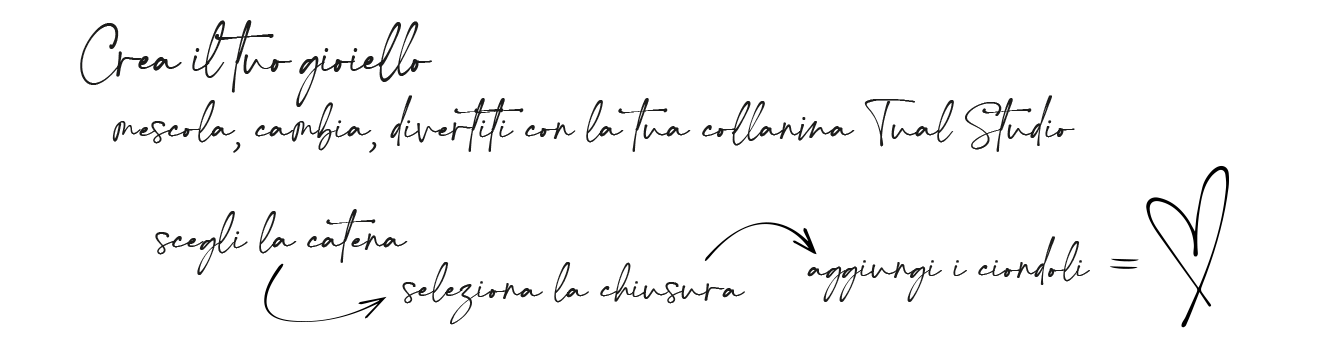 Crea il tuo gioiello
mescola, cambia, divertiti con la tua collanina Tual Studio
scegli la catena
seleziona la chiusura
aggiungi i ciondoli =